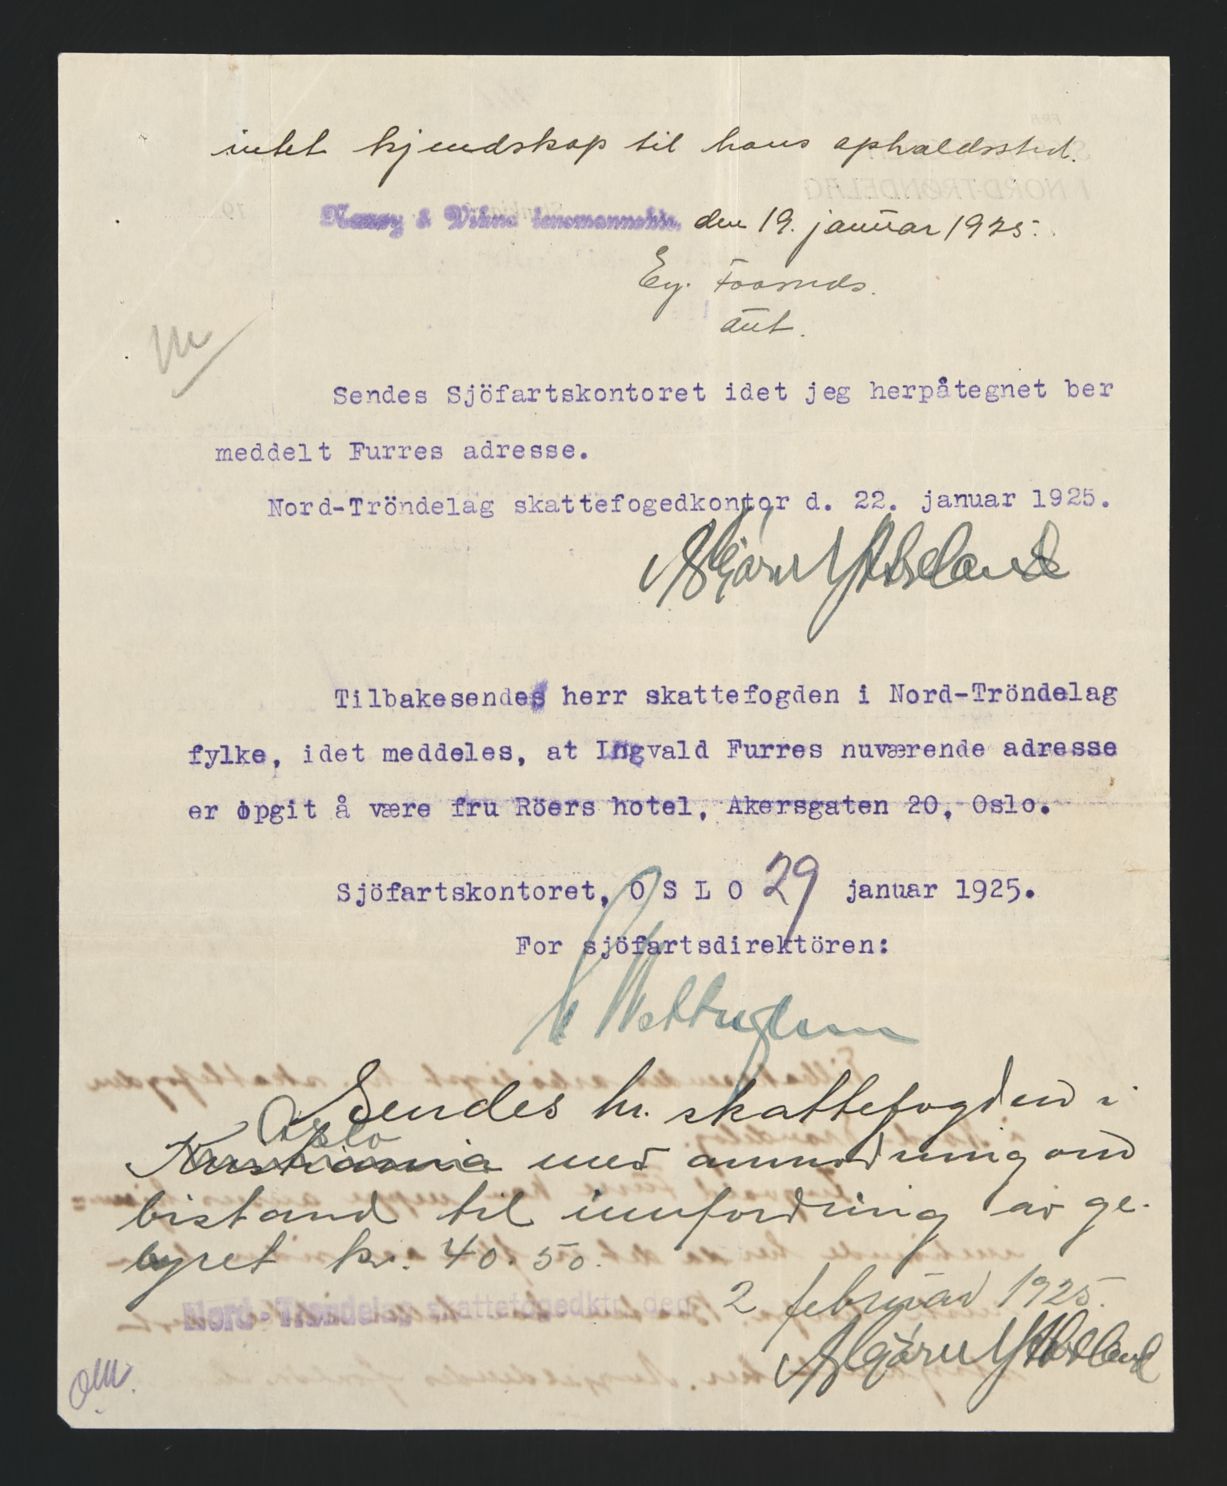 intet kjendskap til hans opholdssted.
Nærøy & Vikna lensmannsktr. den 19. januar 1925.
aut.
Sendes Sjöfartskontoret idet jeg herpåtegnet ber
meddelt Furres adresse.
Nord-Tröndelag skattefogedkontor d. 22. januar 1925.
Tilbakesendes herr skattefogden i Nord-Tröndelag
fylke, idet meddeles, at Ingvald Furres nuværende adresse
er opgit å være fru Röers hotel, Akersgaten 20, Oslo.
Sjöfartskontoret, O S L O 29 januar 1925.
For sjöfartsdirektören:
Sendes hr. skattefogden i
Oslo
Kristiania med anmodning om
bistand til innfordring av ge-
byret kr. 40.50.
Nord-Trøndelag skattefogedktr. den 2 februar 1925.